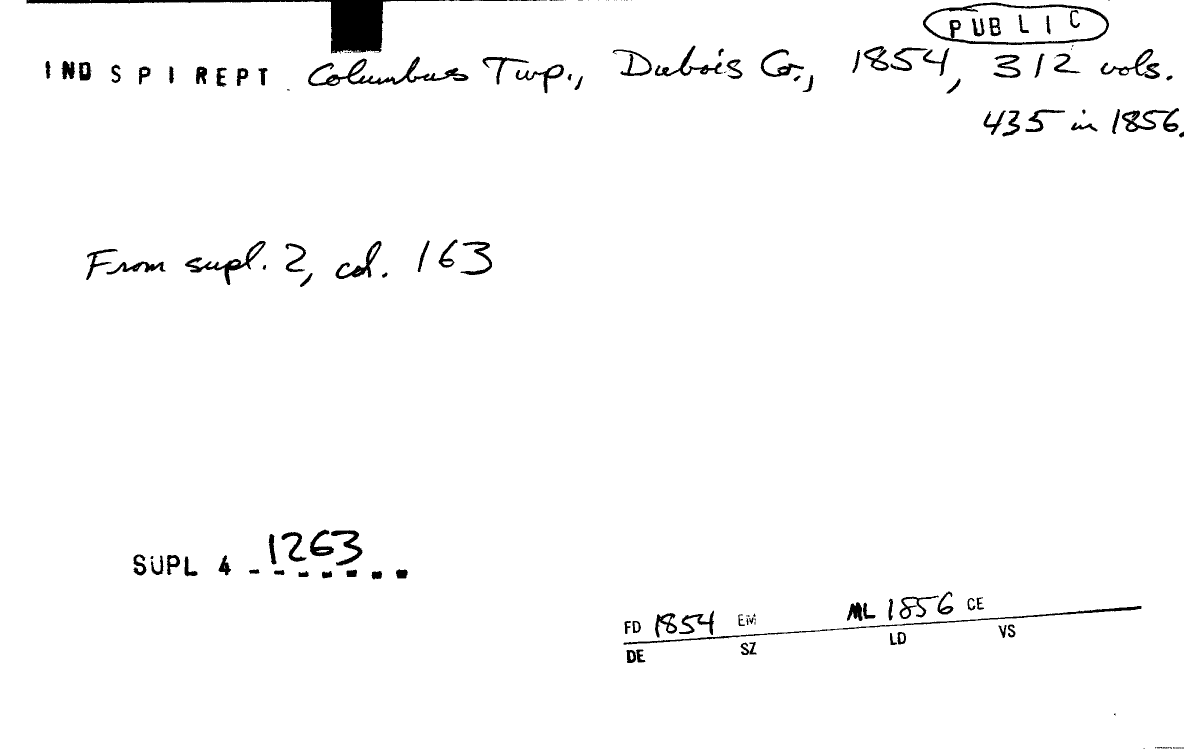 PUBLIC
IND SPI REPT Columbus Twp., Dubois Co., 1854, 312 vols.
435 in 1856.
From supl. 2, col. 163
SUPL 4 1263
FD 1854 EM ML 1856 CE
DE SZ LD VS